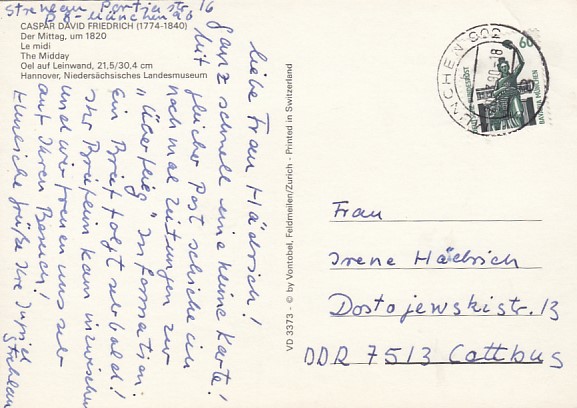 Strehlau Portiastr. 16
D8-München 90
CASPAR DAVID FRIEDRICH (1774-1840)
Der Mittag, um 1820
Le midi
The Midday
Oel auf Leinwand, 21,5/30,4 cm
Hannover, Niedersächsisches Landesmuseum
Liebe Frau Hädrich!
Ganz schnell eine kleine Karte!
Mit gleicher Post schicke ich
nochmal Zeitungen zur
"Überflieg" Information!
Ein Brief folgt sobald!
Ihr Brieflein kam inzwischen
und wir freuen uns sehr
auf Ihren Besuch!
Grüße Ihre
Strehlau
VD 3373 - © by Vontobel, Feldmeilen/Zurich - Printed in Switzerland
MÜNCHEN 802
60
DEUTSCHE BUNDESPOST
BAVARIA MÜNCHEN
Frau
Irene Hädrich
Dostojewskistr. 13
DDR 7513 Cottbus